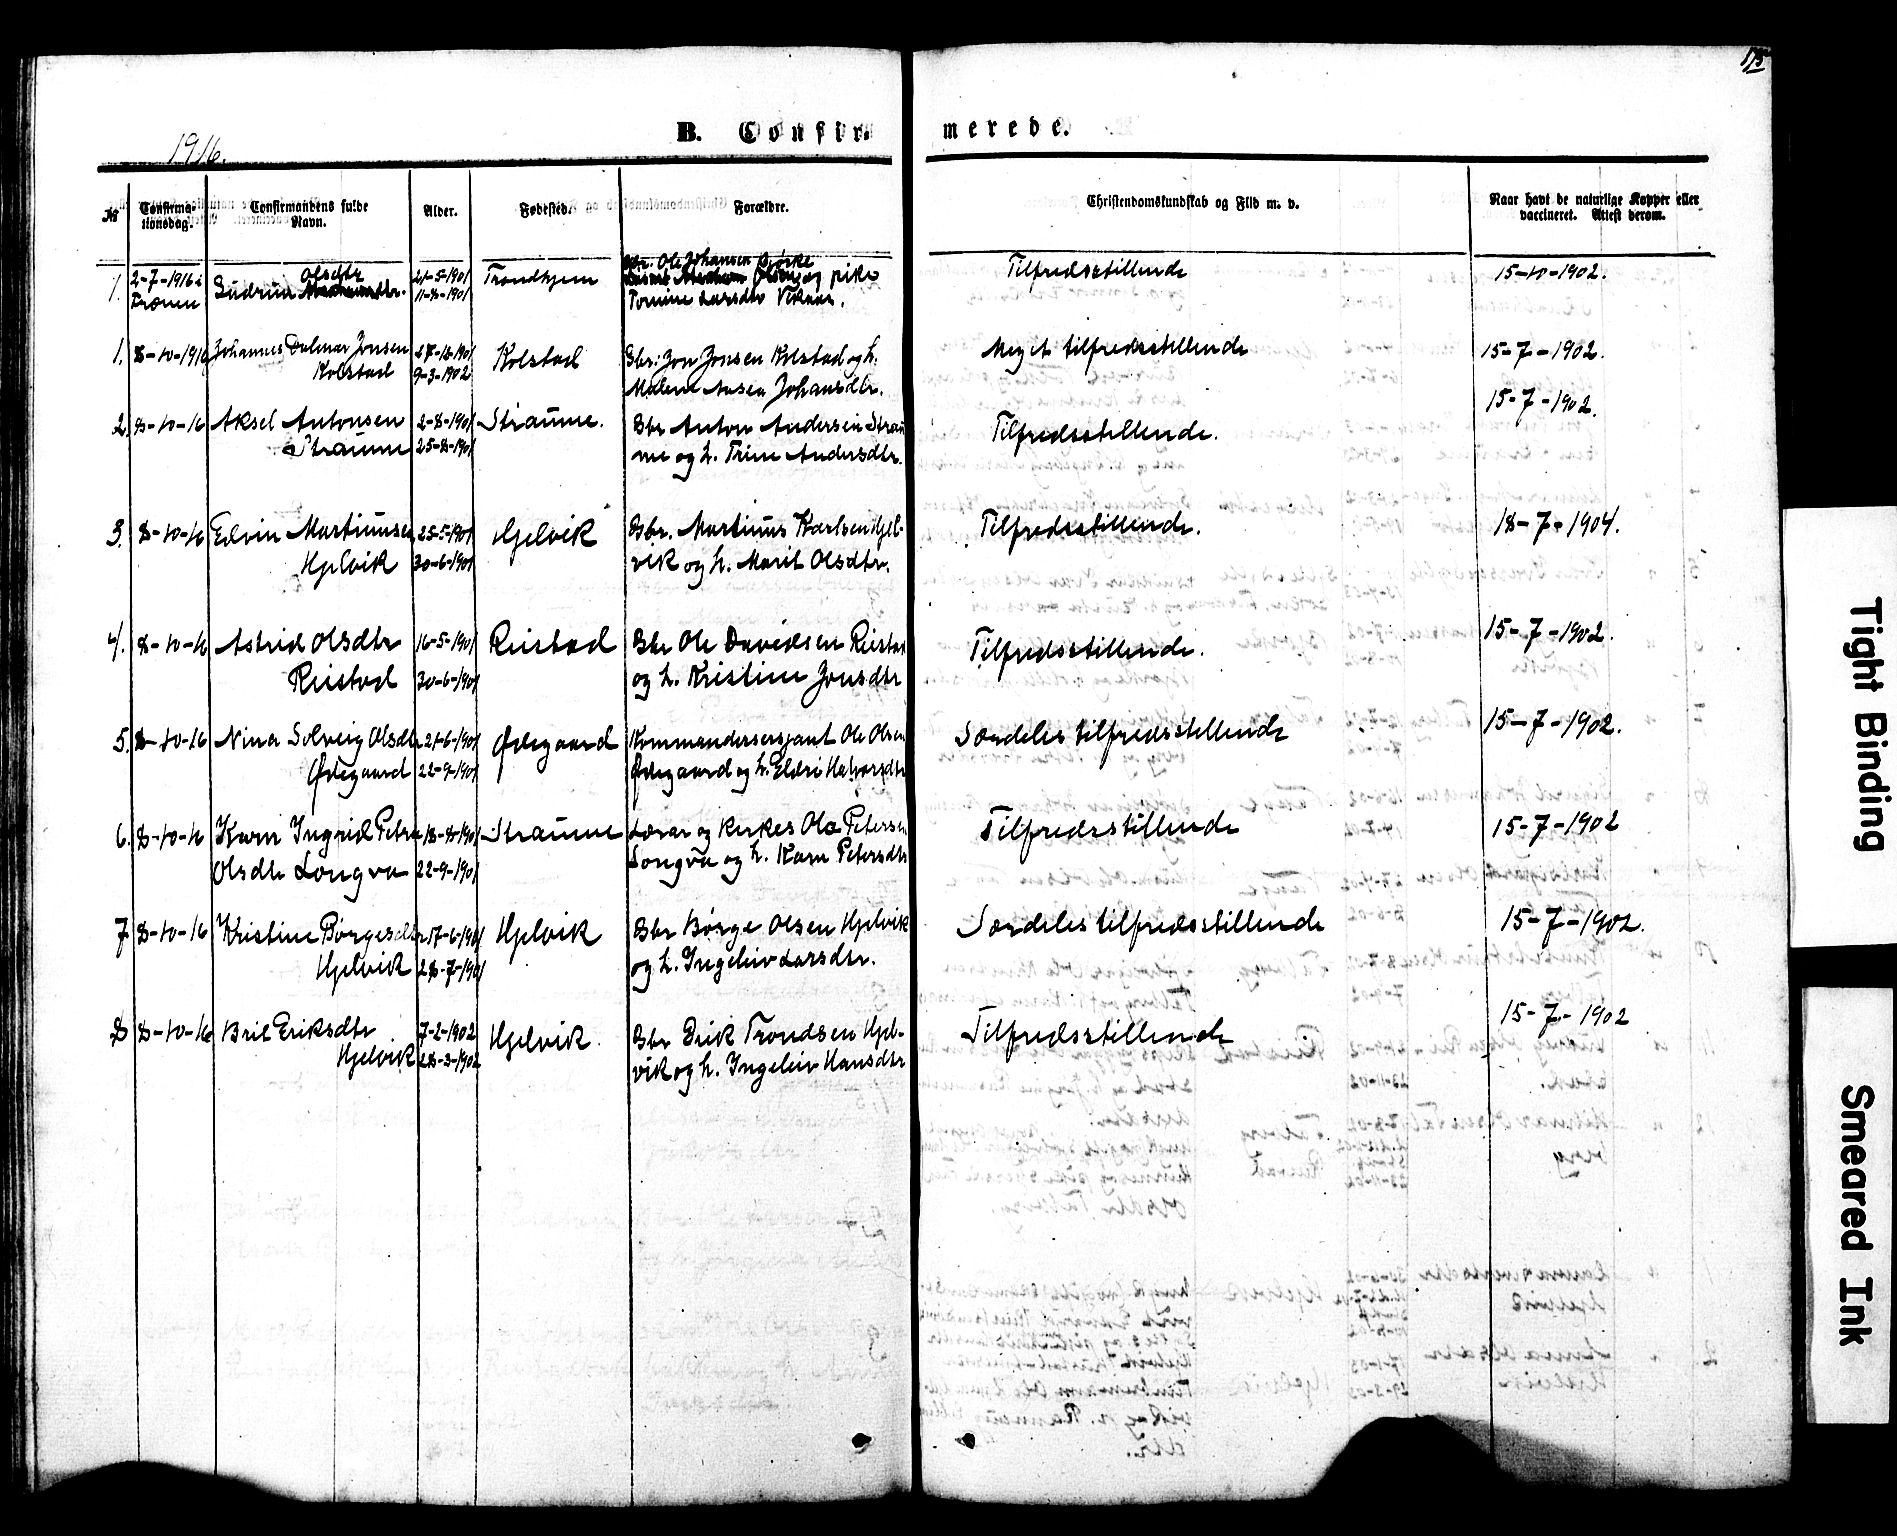 175
1916.
B. Confir
merede.
№
Confirma-
tionsdag.
Confirmandens fulde
Navn.
Alder.
Fødested.
Forældre.
Christendomskundskab og Flid m. v.
Naar havt de naturlige Kopper eller
vaccineret. Attest derom.
1. 2-7-1916 i Olsdtr 21-5-1901 Trondhjem Ole Johansen og pike Tilfredsstillende 15-10-1902.
Frænen Gudrun 11-8-1901 Tomine Larsdtr Vikaas.
1. 8-10-1916 Johannes Dalmar Jonsen 27-12-1901 Kolstad Gbr. Jon Jonsen Kolstad og h. Meget tilfredsstillende 15-7-1902.
Kolstad 9-3-1902 Malene Aasen Johansdtr.
2. 8-10-16 Aksel Antonsen 2-8-1901 Straume. Gbr Anton Andersen Strau Tilfredsstillende. 15-7-1902.
Straume 25-8-1901 me og h. Trine Andersdtr.
3. 8-10-16 Edvin Martinusen 25-5-1901 Hjelvik Gbr. Martinus Karlsen Hjel- Tilfredsstillende. 18-7-1904.
Hjelvik 30-6-1901 vik og h. Marit Olsdtr.
4. 8-10-16 Astrid Olsdtr 16-5-1901 Reistad Gbr Ole Davidsen Reistad Tilfredsstillende. 15-7-1902.
Reistad 30-6-1901 og h. Kristine Jonsdtr
5. 8-10-16 Nina Solveig Olsdtr 21-6-1901 Ødegaard Kommandersersjant Ole Olsen Særdeles tilfredsstillende 15-7-1902.
Ødegaard 22-9-1901 Ødegaard og h. Eldri Halvorsdtr
6. 8-10-16 Karn Ingrid Petra 18-8-1901 Straume Lærar og kirkes Ole Petersen Tilfredsstillende 15-7-1902
Olsdtr Longva 22-9-1901 Longva og h. Karn Petersdtr
7 8-10-16 Kristine Børgesdtr 17-6-1901 Hjelvik Gbr Børge Olsen Hjelvik Særdeles tilfredsstillende 15-7-1902.
Hjelvik 28-7-1901 og h. Ingeleiv Larsdtr.
8 8-10-16 Brit Eriksdtr 7-2-1902 Hjelvik. Gbr Erik Trondsen Hjel- Tilfredsstillende 15-7-1902
Hjelvik 28-3-1902 vik og h. Ingeleiv Hansdtr
Tight Binding
Smeared Ink